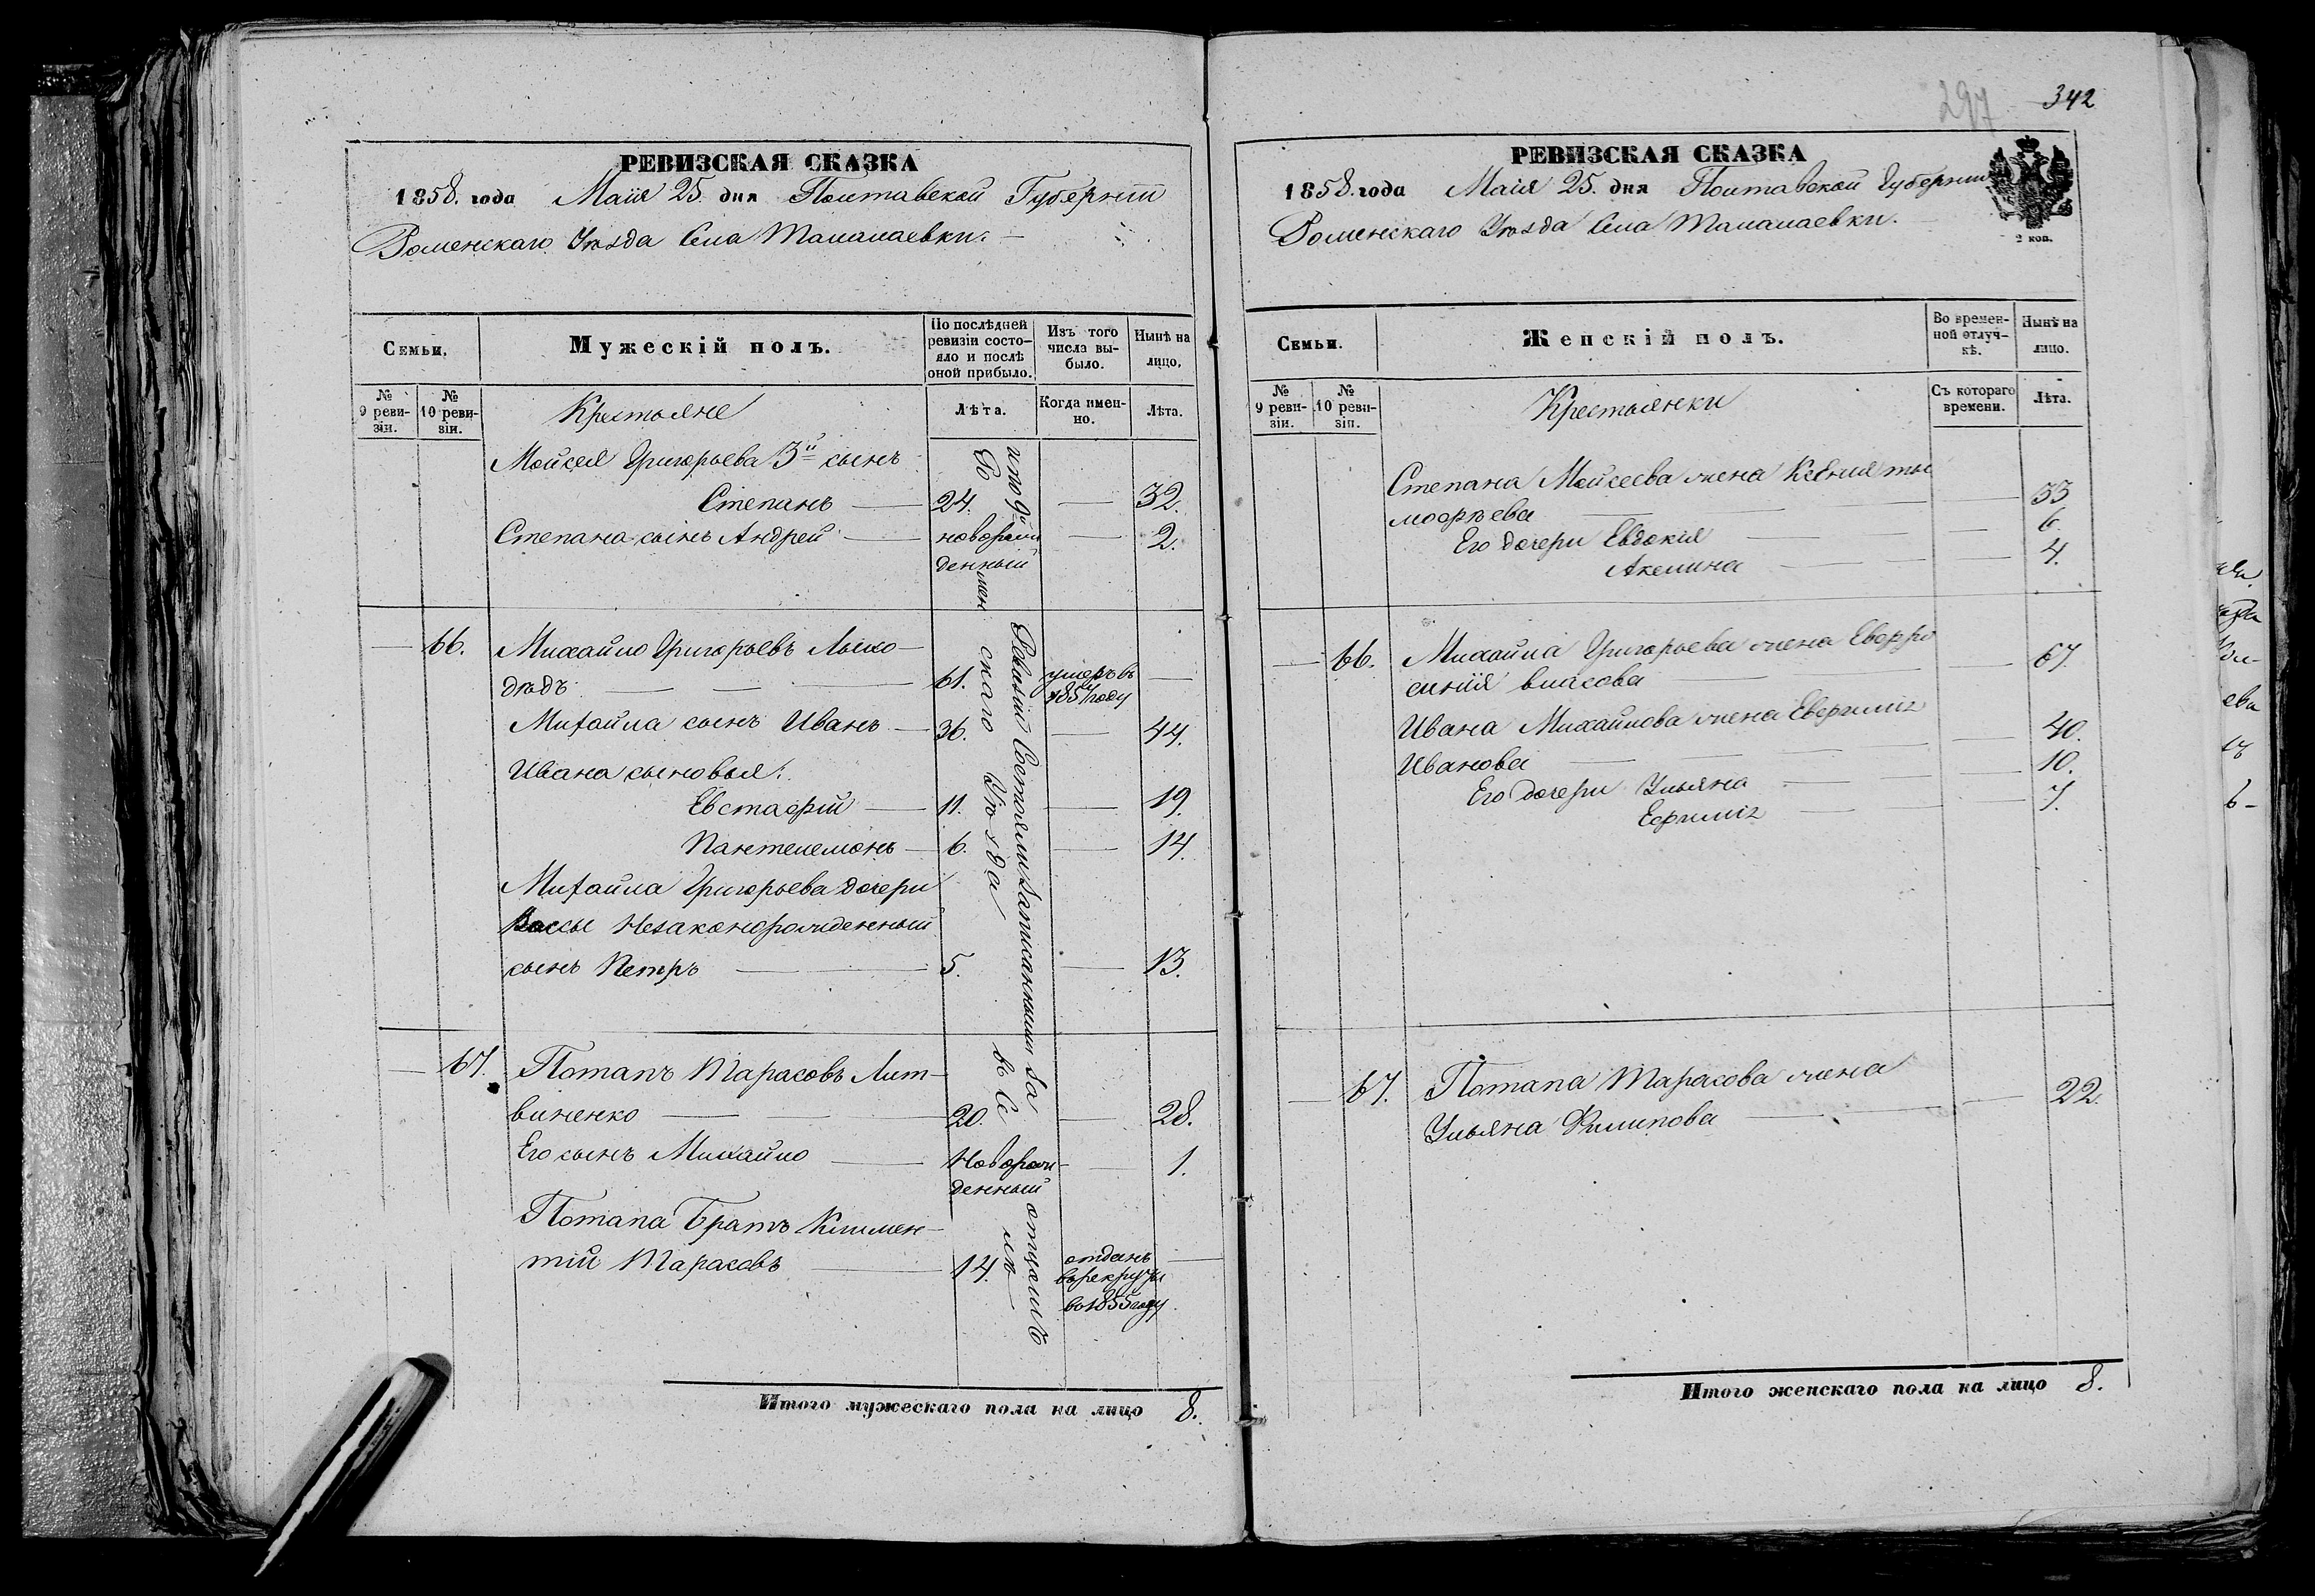 297 342
РЕВИЗСКАЯ СКАЗКА
1858. года Маія 25. дня Полтавской Губерніи
Роменскаго Уѣзда Села Талалаевки.
Семьи.
Мужескій полъ.
По послѣдней ревизіи состо-
яло и послѣ
оной прибыло.
Изъ того
числа вы-
было.
Нынѣ на
лицо.
№
9 реви-
зіи.
№
10 реви-
зіи.
Крестьяне
Лѣта.
Когда имен-
но.
Лѣта.
Мойсея Григорьева 3й сынъ
Степанъ 24. 32.
Степана сынъ Андрей новорож 2.
денный
66. Михайло Григорьевъ Лысо-
дѣдъ 61. умеръ въ
1857 году
Михайла сынъ Иванъ 36. 44.
Ивана сыновья:
Евстафій 11. 19.
Пантелемонъ 6. 14.
Михайла Григорьева дочери
Вассы Незаконорожденный
сынъ Петръ 5. 13.
67. Потапъ Тарасовъ Лит-
виненко 20. 28.
Его сынъ Михайло Новорож- 1.
денный
Потапа Братъ Климен-
тій Тарасовъ 14. отданъ
въ рекруты
въ 1855 году
По 9й Ревизіи Состояли Записанными за
Уѣзда
въ Се
Итого мужескаго пола на лицо 8.
РЕВИЗСКАЯ СКАЗКА
1858. года Маія 25. дня Полтавской Губерніи
Роменскаго Уѣзда Села Талалаевки.
2 коп.
Семьи.
Женскій полъ.
Во времен-
ной отлуч-
кѣ.
Нынѣ на
лицо.
№
9 реви-
зіи.
№
10 реви-
зіи.
Крестьянки
Съ котораго
времени.
Лѣта.
Степана Мойсеева жена Ксенія Ти
мофѣева 33
Его дочери Евдокія 6.
Акелина 4.
66. Михайла Григорьева жена Евфро
синія Власова 67.
Ивана Михайлова жена Евфимія
Иванова 40.
Его дочери Ульяна 10.
Ефимія 7.
67. Потапа Тарасова жена
Ульяна Филипова 22.
Итого женскаго пола на лицо 8.